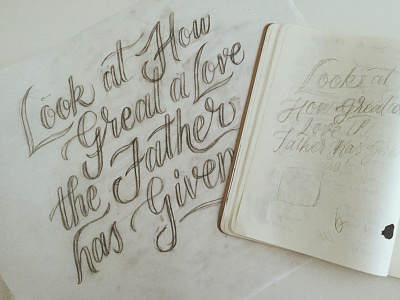 Look at How
Great a Love
the Father
has Given
Look at
How Great a
Love th
Father has Giv